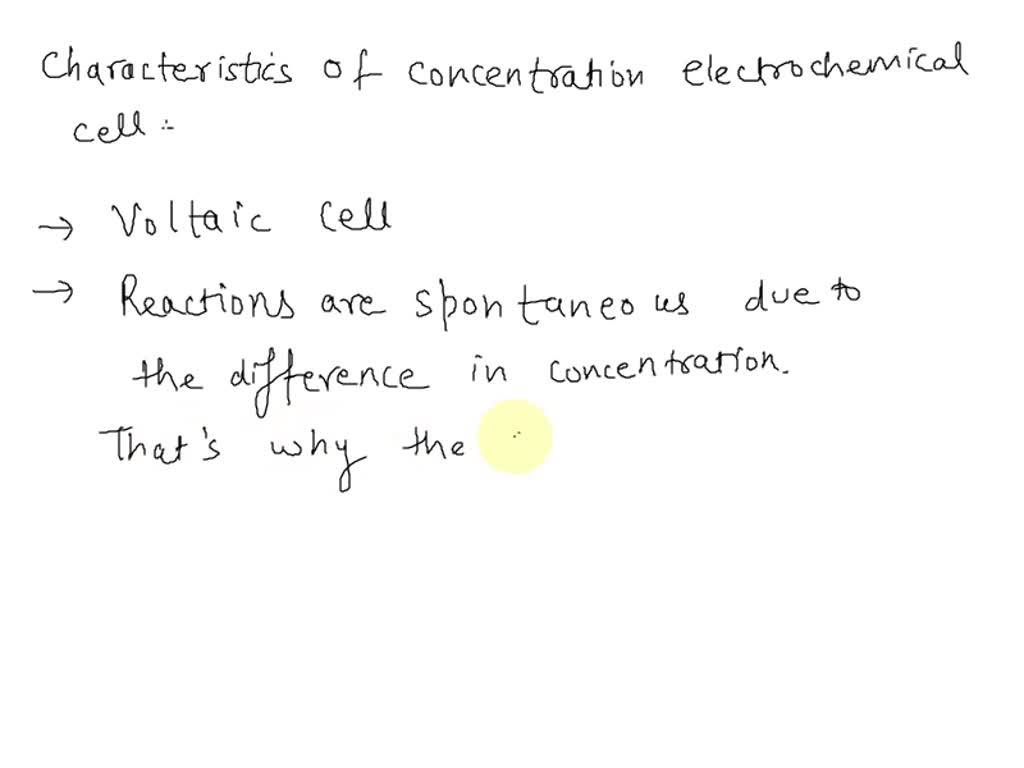 Characteristics of concentration electrochemical
cell :-
→ Voltaic cell
→ Reactions are spontaneous due to
the difference in concentration.
That's why the